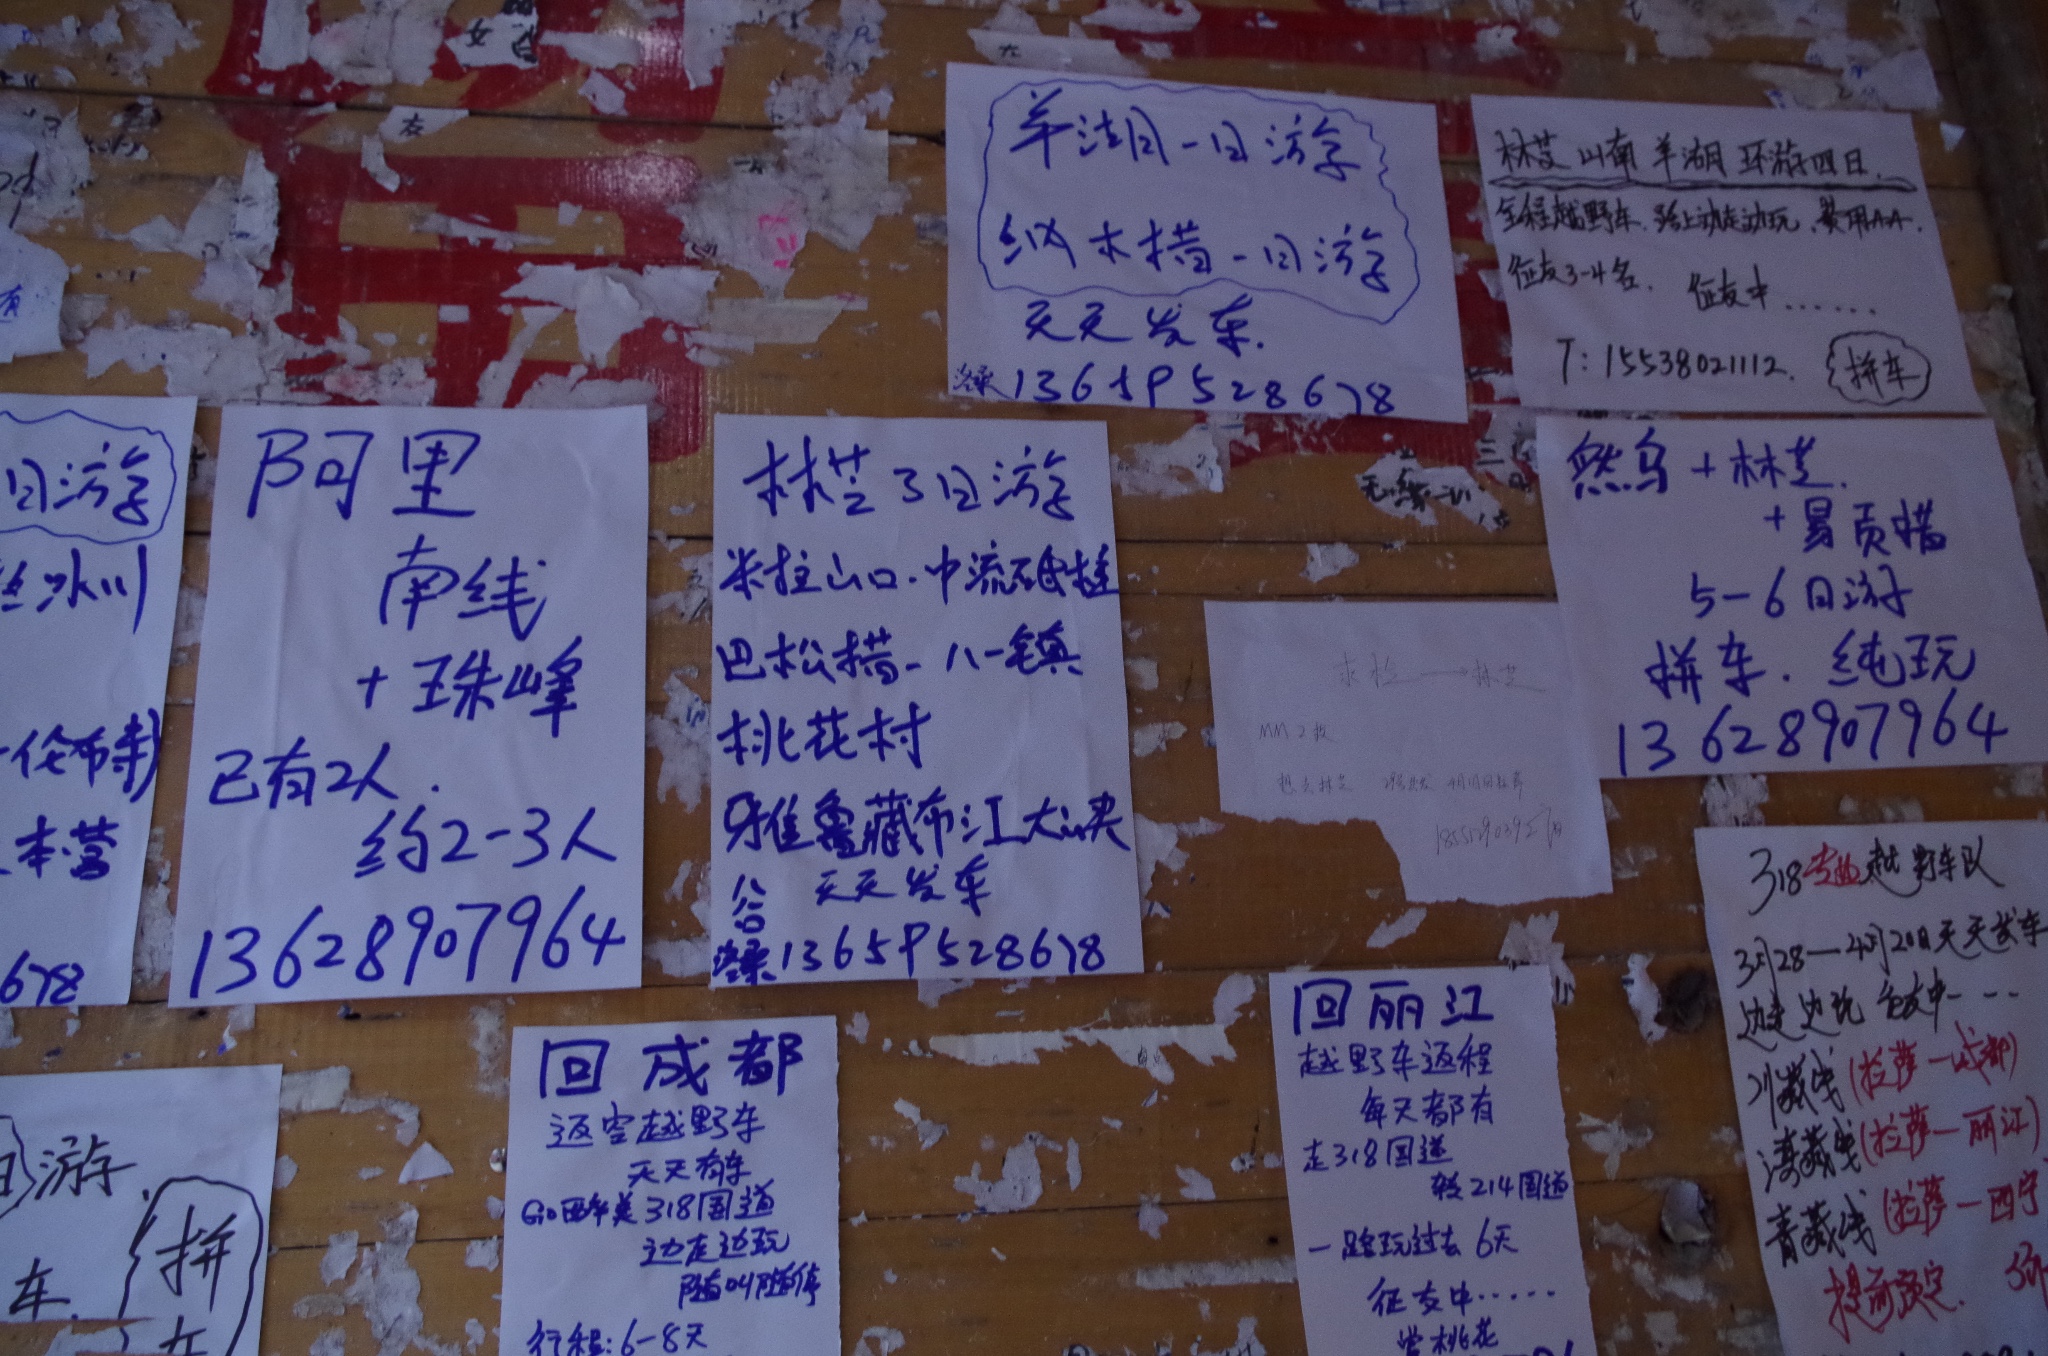 羊湖一日游
纳木措一日游
天天发车.
洛桑13659528678
林芝 山南 羊湖 环游四日.
全程越野车.路上边走边玩.费用AA.
征友3-4名. 征友中......
T:15538021112.
拼车
日游
冰川
伦布寺)
本营
678
阿里
南线
+珠峰
已有2人.
约2-3人
13628907964
林芝3日游
米拉山口.中流砥柱
巴松措-八一镇
桃花村
雅鲁藏布江大峡
谷 天天发车
洛桑13659528678
然乌+林芝.
+易贡措
5-6日游
拼车.纯玩
13628907964
求捡→林芝
MM2枚
318专业越野车队
3月28—4月20日天天发车
边走边玩 征友中...
川藏线(拉萨—成都)
滇藏线(拉萨—丽江)
青藏线(拉萨—西宁
提前预定.
回成都
返空越野车
天天有车
318国道
边走边玩
随叫随停
行程:6-8天
回丽江
越野车返程
每天都有
走318国道
转214国道
一路玩过去 6天
征友中.....
赏桃花
日游
车.
拼